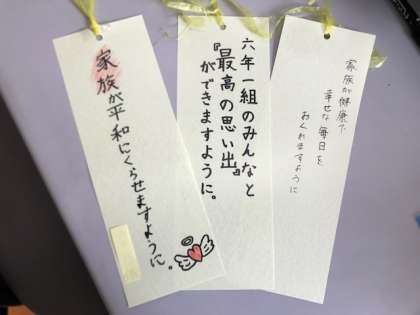 家族が平和にくらせますように。
六年一組のみんなと
『最高の思い出』
ができますように。
家族が健康で
幸せな毎日を
おくれますように